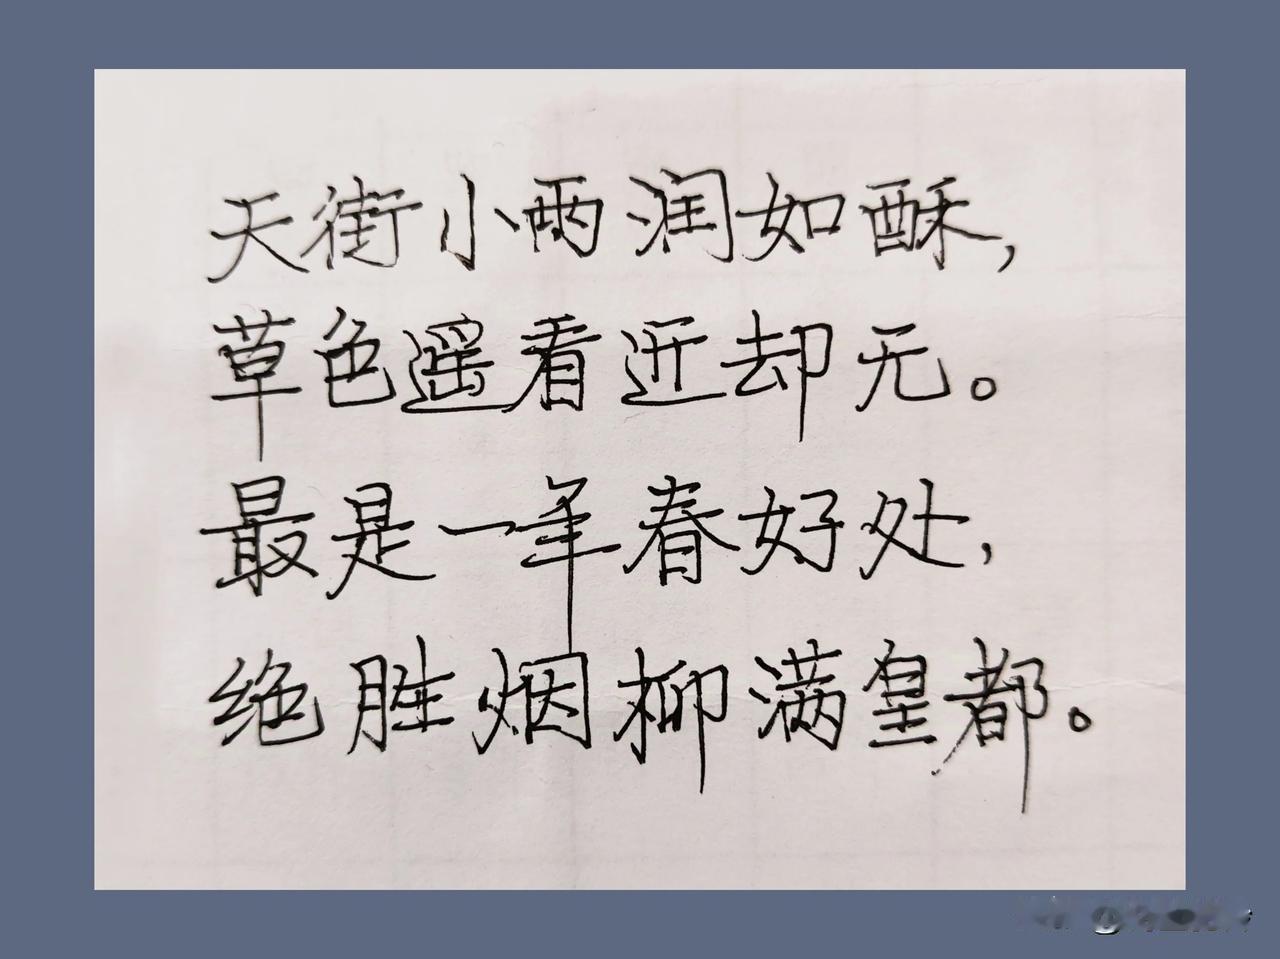 天街小雨润如酥，
草色遥看近却无。
最是一年春好处，
绝胜烟柳满皇都。